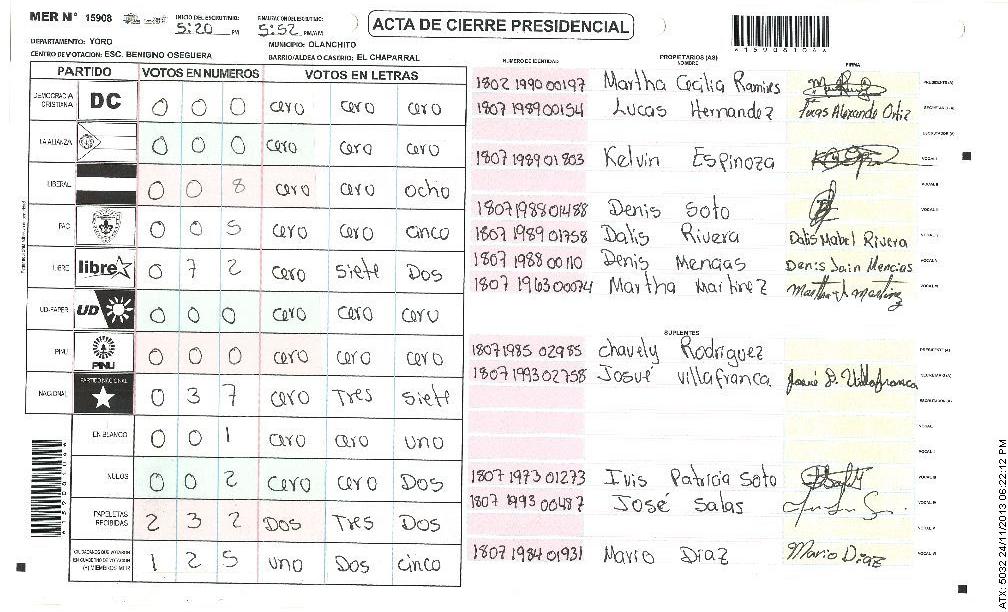 MER N° 15908 INICIO DEL ESCRUTINIO: 5:20 PM FINALIZACION DEL ESCRUTINIO: 5:52 PM/AM ACTA DE CIERRE PRESIDENCIAL
DEPARTAMENTO: YORO MUNICIPIO: OLANCHITO
CENTRO DE VOTACION: ESC. BENIGNO OSEGUERA BARRIO/ALDEA O CASERIO: EL CHAPARRAL
PARTIDO VOTOS EN NUMEROS VOTOS EN LETRAS
DEMOCRACIA CRISTIANA DC 0 0 0 cero cero cero
LA ALIANZA 0 0 0 cero cero cero
LIBERAL 0 0 8 cero cero ocho
PAC 0 0 5 cero cero cinco
LIBRE libre 0 7 2 cero siete Dos
UD-FAPER UD 0 0 0 cero cero cero
PINU PINU 0 0 0 cero cero cero
NACIONAL PARTIDO NACIONAL 0 3 7 cero Tres siete
EN BLANCO 0 0 1 cero cero uno
NULOS 0 0 2 cero cero Dos
PAPELETAS RECIBIDAS 2 3 2 Dos Tres Dos
CIUDADANOS QUE VOTARON EN CUADERNO DE VOTACION (+) MIEMBROS MER 1 2 5 uno Dos cinco
NUMERO DE IDENTIDAD PROPIETARIOS (AS) NOMBRE FIRMA
1802 1990 00197 Martha Cecilia Ramires PRESIDENTE(A)
1807 1989 00154 Lucas Hernandez SECRETARIO(A)
ESCRUTADOR (A)
1807 1989 01803 Kelvin Espinoza VOCAL I
VOCAL II
1807 1988 01488 Denis Soto VOCAL III
1807 1989 01758 Dalis Rivera Dalis Mabel Rivera
1807 1988 00110 Denis Mencias Denis Jain Mencias VOCAL V
1807 1963 00074 Martha Martinez VOCAL VI
SUPLENTES
1807 1985 02985 Chavely Rodriguez PRESIDENTE (A)
1807 1993 02758 Josué Villafranca Josué D. Villafranca SECRETARIO(A)
ESCRUTADOR(A)
VOCAL I
VOCAL II
1807 1973 01273 Ivis Patricia Soto VOCAL III
1807 1993 00487 José Salas VOCAL IV
VOCAL V
1807 1984 01931 Mario Diaz Mario Diaz VOCAL VI
ATX: 5032 24/11/2013 06:22:12 PM